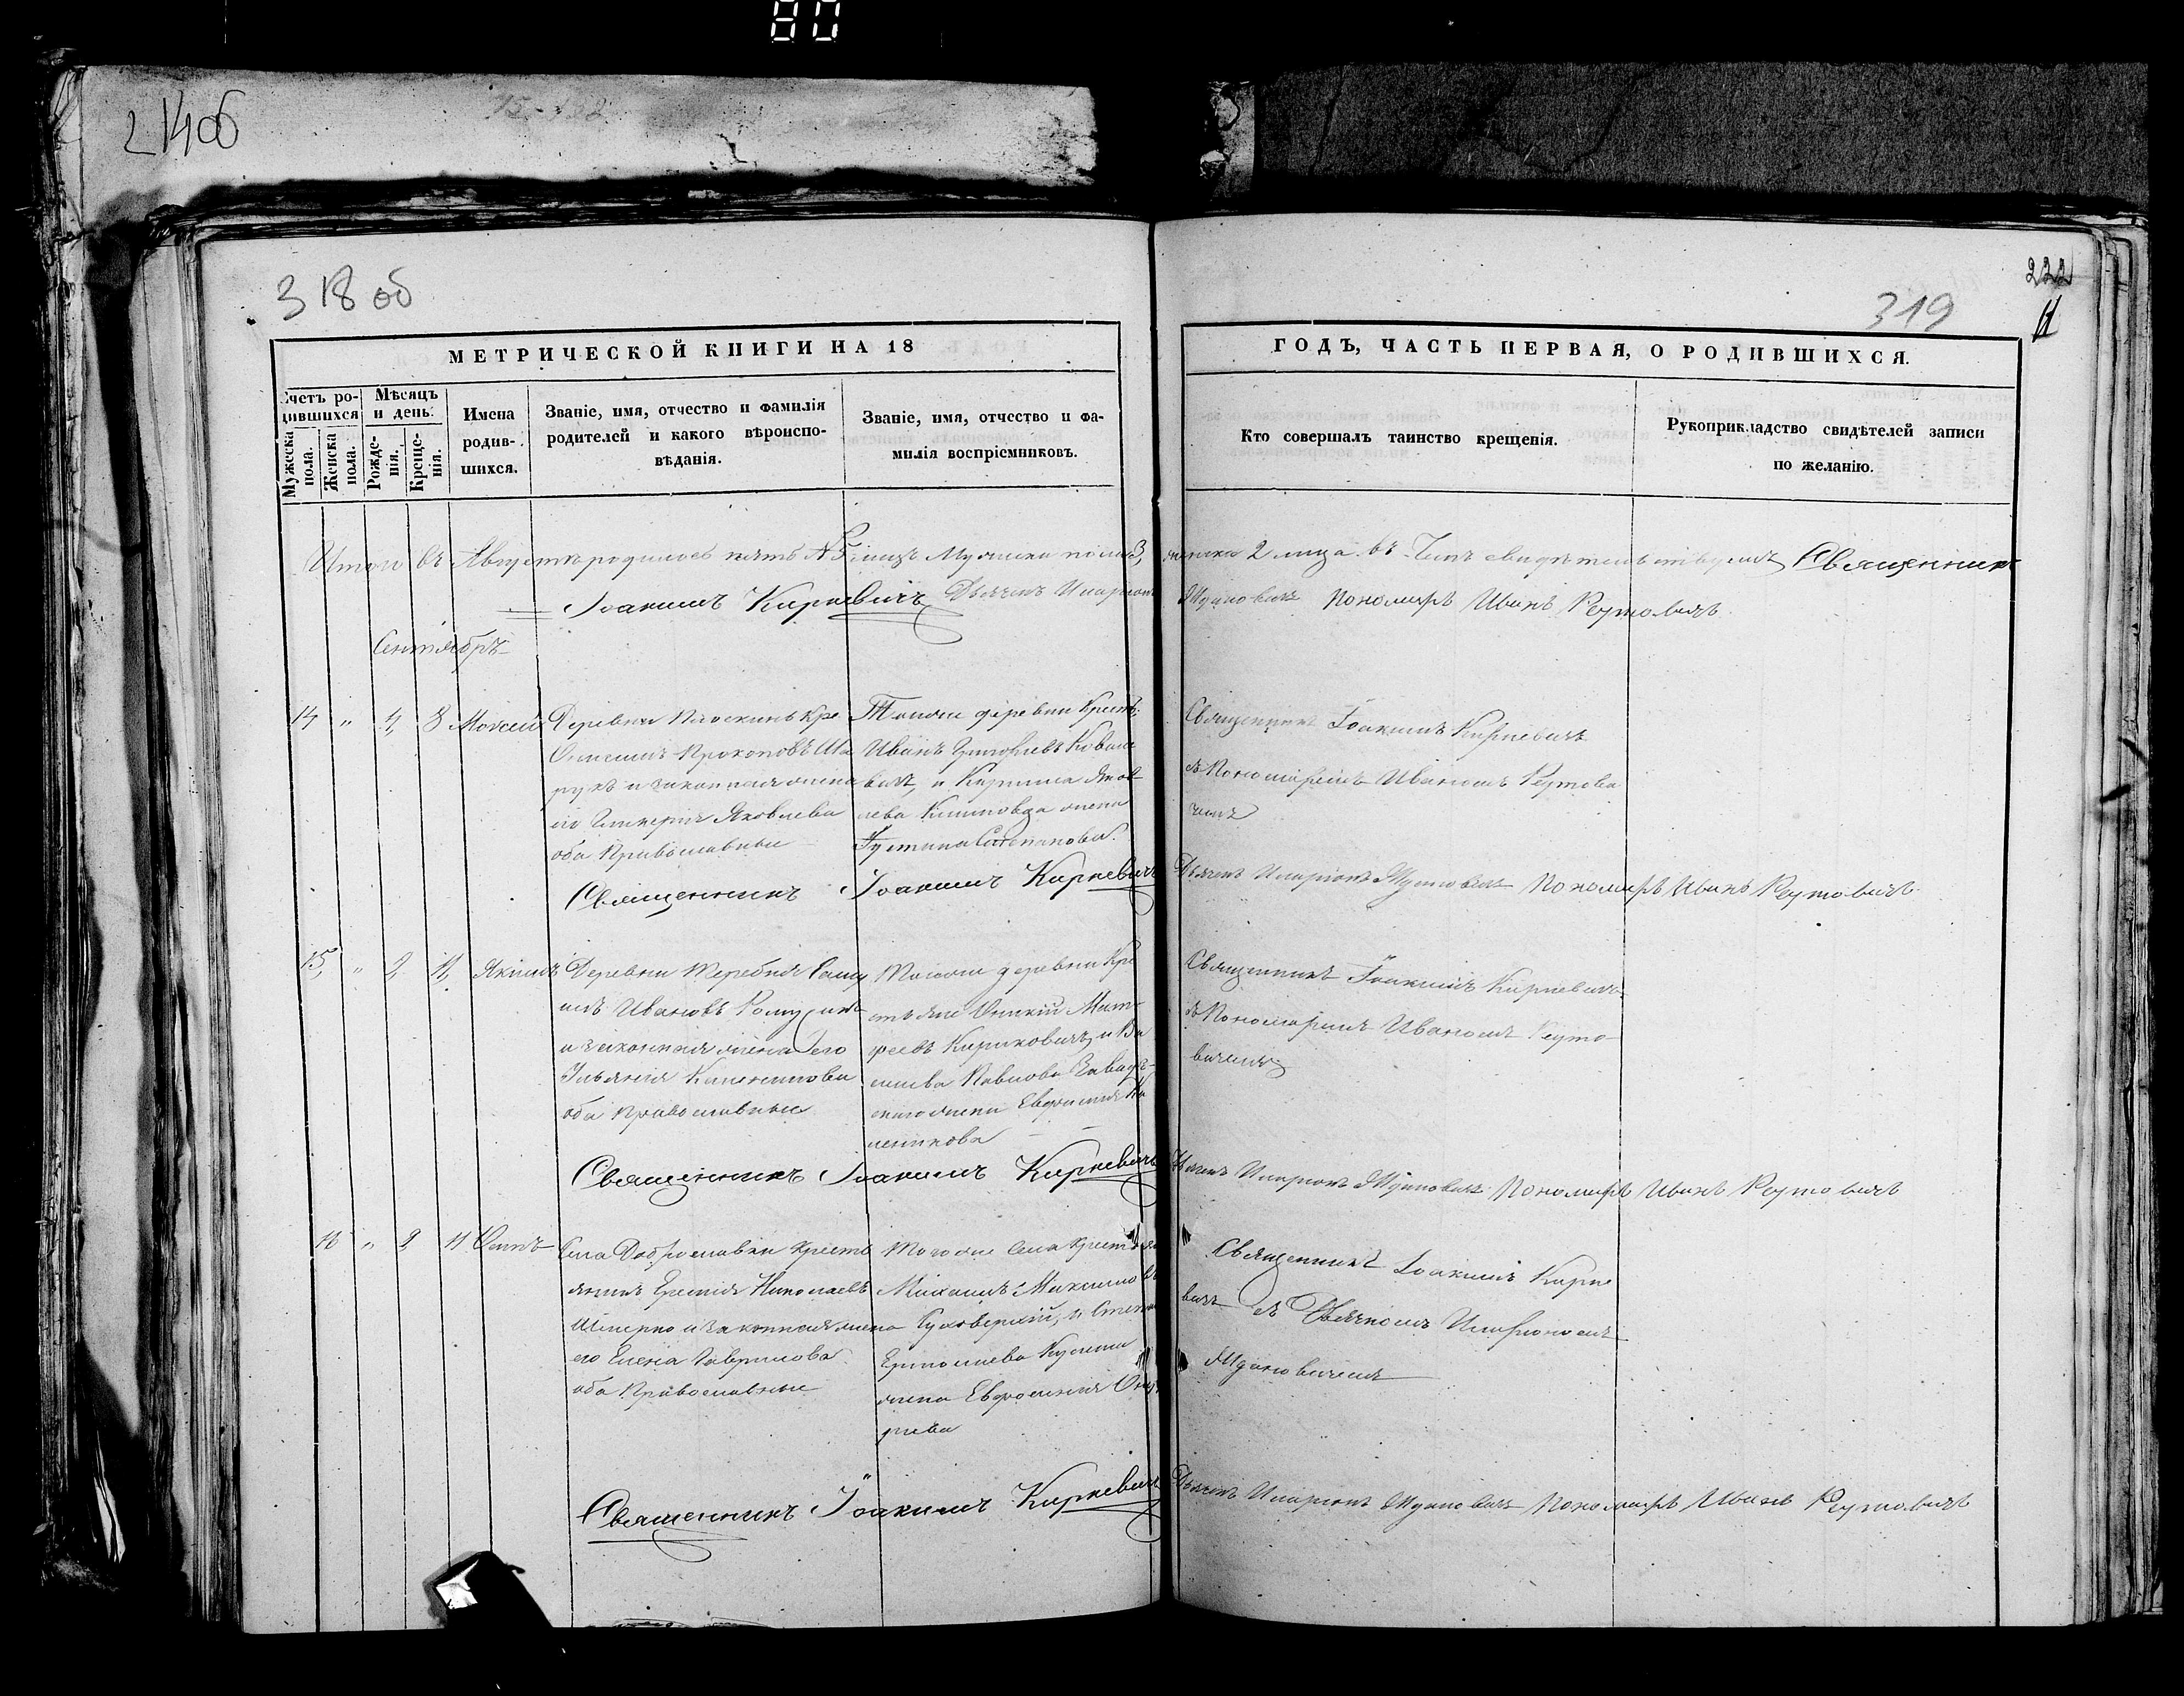 80
214об
318 об
319
222
11
МЕТРИЧЕСКОЙ КНИГИ НА 18
ГОДЪ, ЧАСТЬ ПЕРВАЯ, О РОДИВШИХСЯ.
Счетъ родившихся
Мужеска пола.
Женска пола.
Мѣсяцъ и день.
Рожденія.
Крещенія.
Имена родившихся.
Званіе, имя, отчество и фамилія
родителей и какого вѣроиспо-
вѣданія.
Званіе, имя, отчество и фа-
милія воспріемниковъ.
Кто совершалъ таинство крещенія.
Рукоприкладство свидѣтелей записи
по желанію.
Итого въ Августѣ родилось пять № 5 лицъ Мужеска пола 3, женска 2 лица въ Чемъ свидѣтельствуемъ Священникъ
Іоакимъ Кирневичъ Дьячекъ Иларіонъ Ждановичъ Пономарь Иванъ Реутовичъ
Сентябрь
14 " 4 8 Моисей
Деревни Плоскинь Кре
Прокоповъ
и законная жена
его Гликерія Яковлева
оба Православные
Тойже деревни Крест:
Иванъ Григорьевъ Ковале
вичъ, и Кирилла Яков
лева жена
Іустина Степанова.
Священникъ Іоакимъ Кирневичъ
съ Пономаремъ Иваномъ Реутови
чемъ
Священникъ Іоакимъ Кирневичъ Дьячекъ Иларіонъ Ждановичъ Пономарь Иванъ Реутовичъ
15 " 2 11 Якимъ
Деревни Теребня
Ивановъ
и законная жена его
Ульянія
оба Православные
Тоюже деревни Кре
стьяне Мат
феевъ Кириковичъ, и Ва
силія Павлова
жена Евфимія
Священникъ Іоакимъ Кирневичъ
съ Пономаремъ Иваномъ Реуто-
вичемъ
Священникъ Іоакимъ Кирневичъ Дьячекъ Иларіонъ Ждановичъ Пономарь Иванъ Реутовичъ
16 " 2 11
Села Доброславки Кресть
янинъ Еремія Николаевъ
и законная жена
его Елена Гаврилова
оба Православные
Тогоже Села Крестьяне
Михаилъ Максимовъ
Суховерхій, и
Ермолаева
жена Евфросинія
Священникъ Іоакимъ Кирне
вичъ съ Дьячкомъ Иларіономъ
Ждановичемъ
Священникъ Іоакимъ Кирневичъ Дьячекъ Иларіонъ Ждановичъ Пономарь Иванъ Реутовичъ